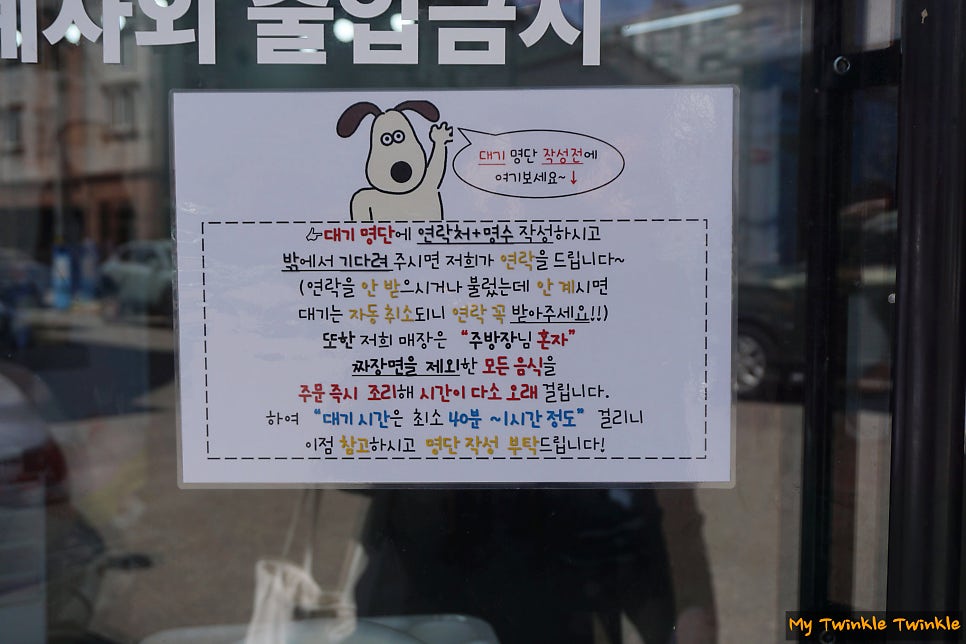 사외 출입금지
대기 명단 작성전에
여기보세요~↓
👉대기 명단에 연락처+명수 작성하시고
밖에서 기다려 주시면 저희가 연락을 드립니다~
(연락을 안 받으시거나 불렀는데 안 계시면
대기는 자동 취소되니 연락 꼭 받아주세요!!)
또한 저희 매장은 "주방장님 혼자"
짜장면을 제외한 모든 음식을
주문 즉시 조리해 시간이 다소 오래 걸립니다.
하여 "대기 시간은 최소 40분 ~1시간 정도" 걸리니
이점 참고하시고 명단 작성 부탁드립니다!
My Twinkle Twinkle